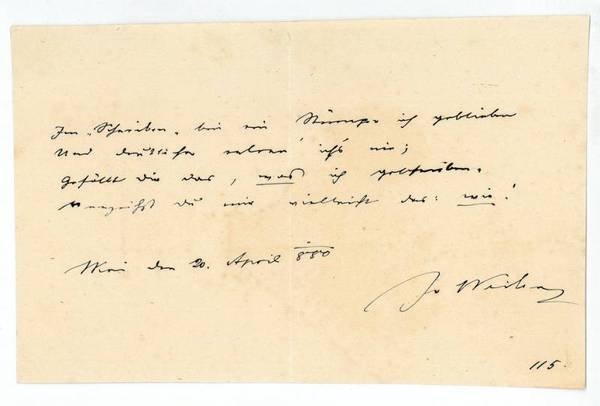 Im „Schreiben“ bin ein Stümper ich geblieben
Und deutlicher erlern' ich's nie;
Gefällt Dir das, was ich geschrieben,
Verzeihst Du mir vielleicht das: wie!
den 20. April 880
115.